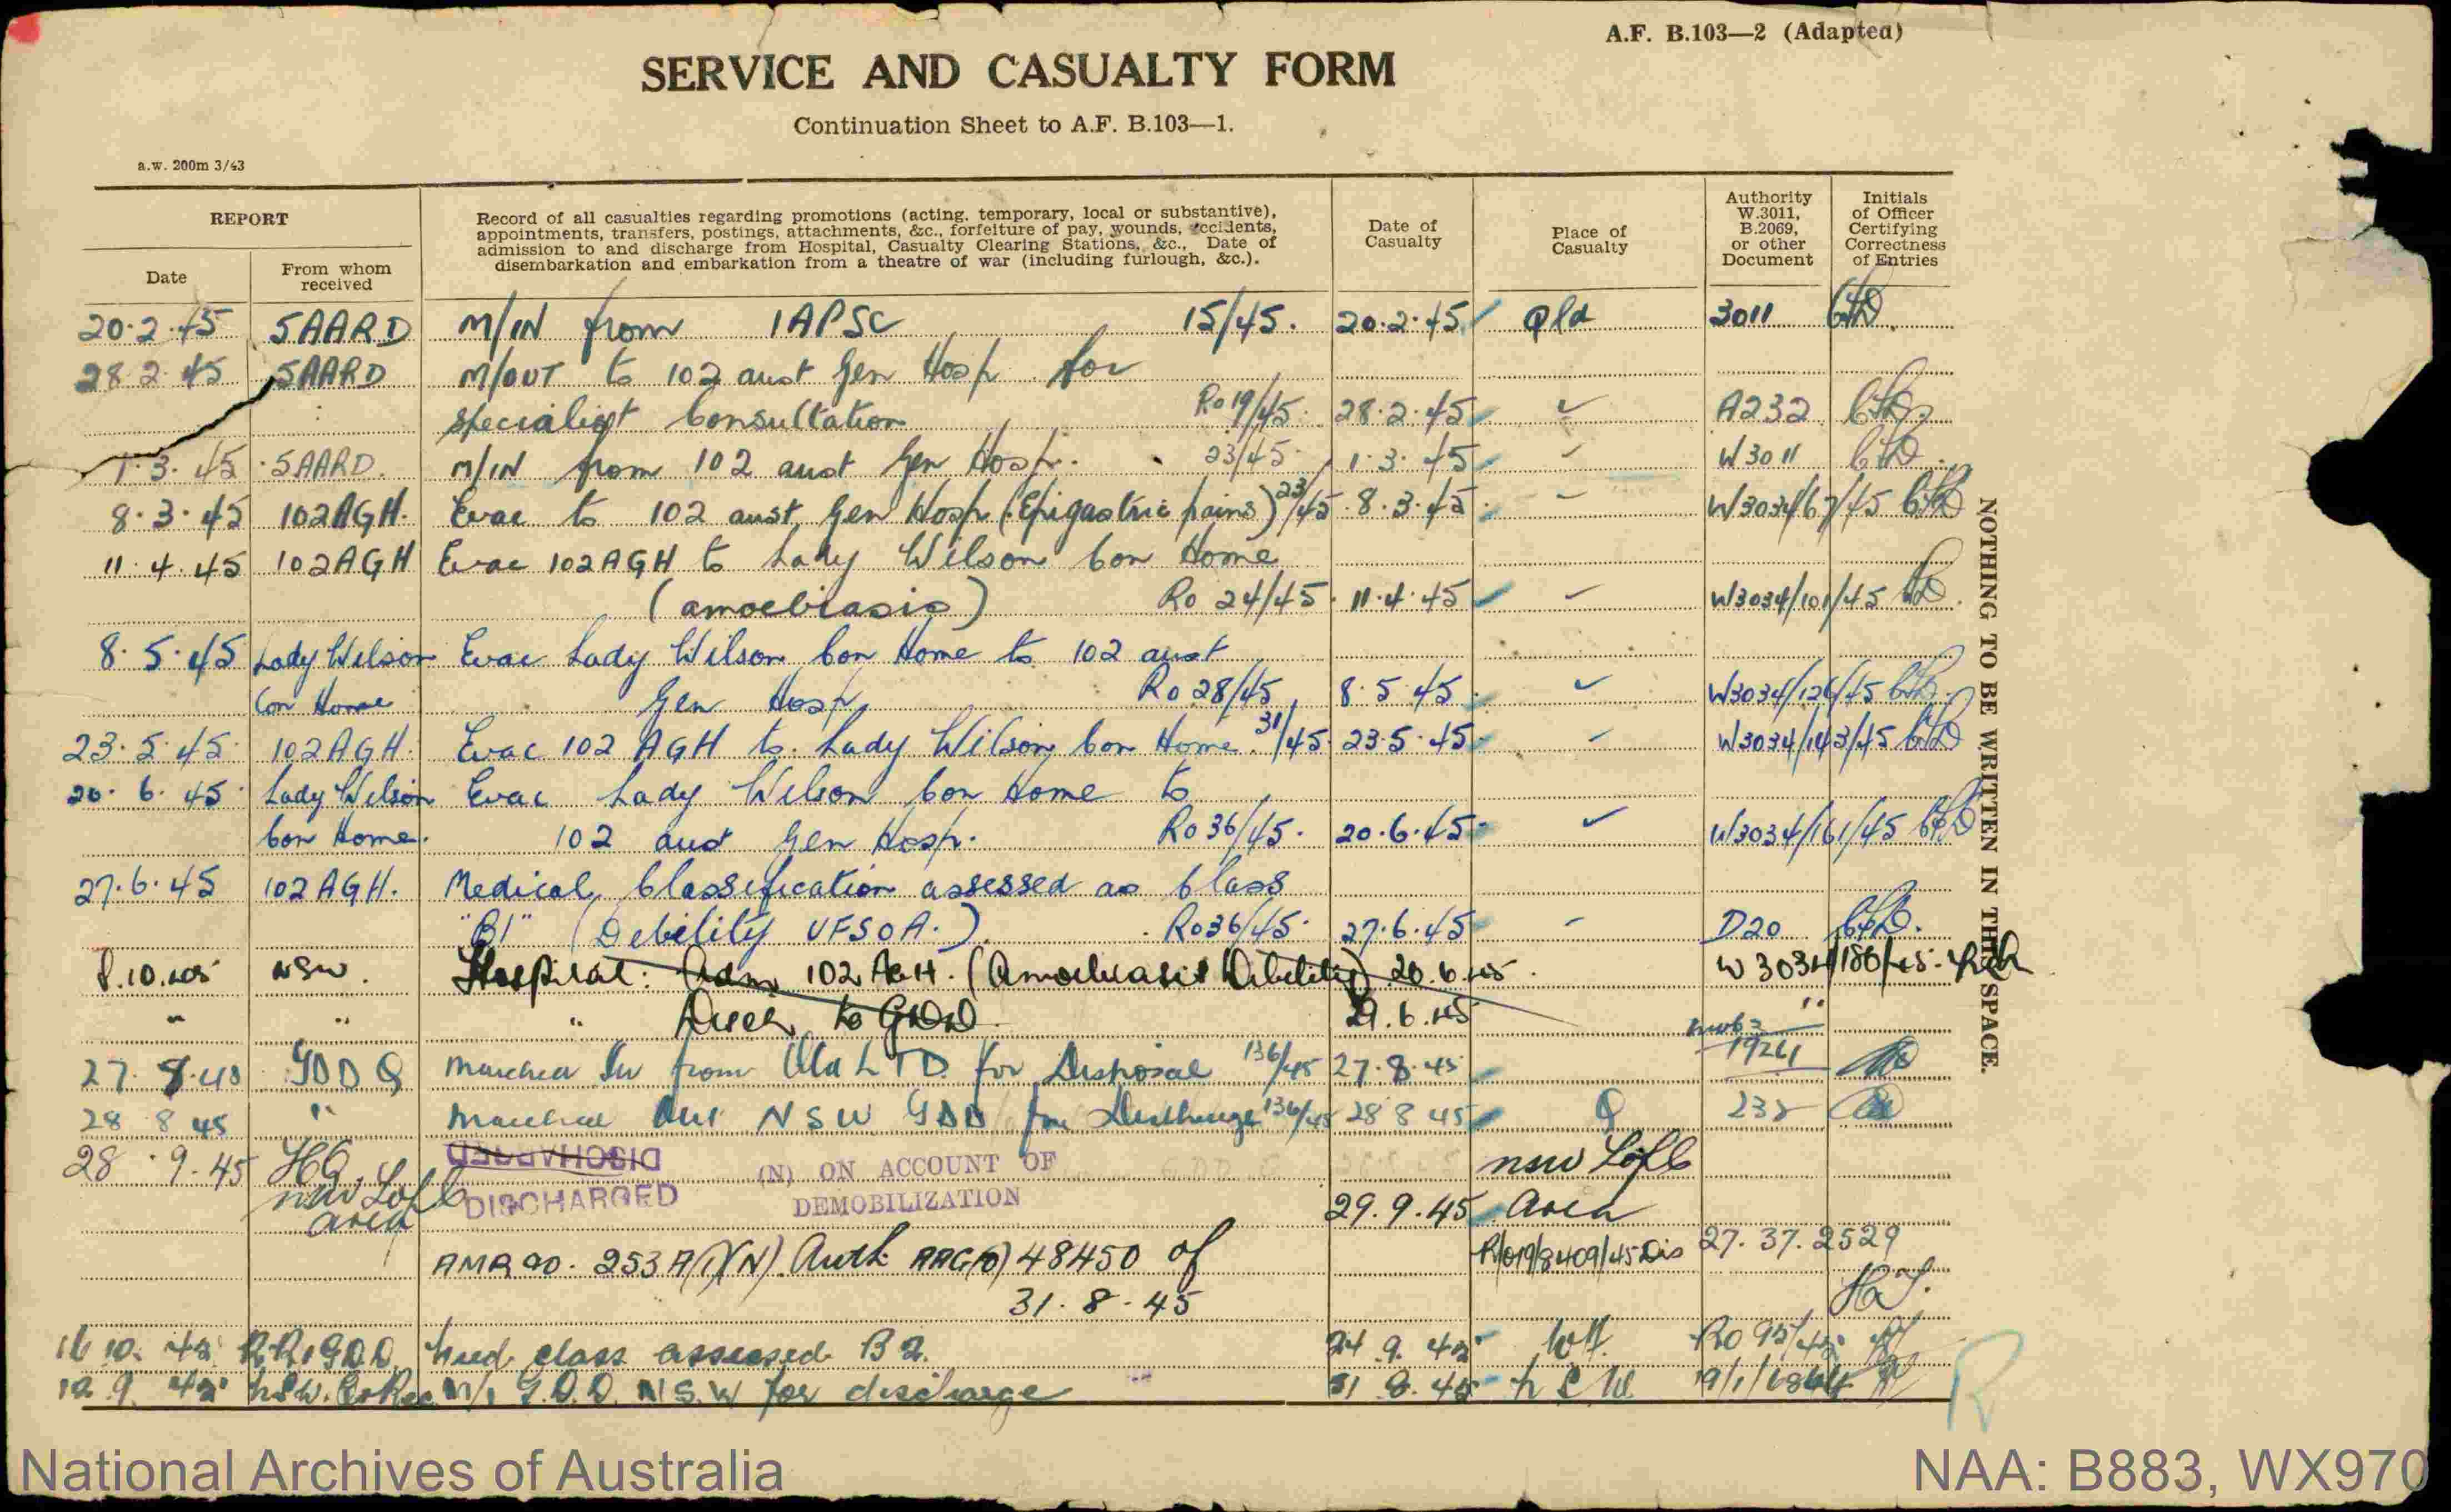 A.F. B.103—2 (Adapted)
SERVICE AND CASUALTY FORM
Continuation Sheet to A.F. B.103—1.
a.w. 200m 3/43
REPORT
Date
From whom received
Record of all casualties regarding promotions (acting, temporary, local or substantive), appointments, transfers, postings, attachments, &c., forfeiture of pay, wounds, accidents, admission to and discharge from Hospital, Casualty Clearing Stations, &c., Date of disembarkation and embarkation from a theatre of war (including furlough, &c.).
Date of Casualty
Place of Casualty
Authority W.3011, B.2069, or other Document
Initials of Officer Certifying Correctness of Entries
20.2.45 5AARD M/IN from 1APSC 15/45. 20.2.45 Qld 3011
28.2.45 5AARD M/OUT to 102 aust Gen Hosp for
specialist Consultation Ro 19/45. 28.2.45 A232
1.3.45 5AARD. M/IN from 102 aust Gen Hosp. 23/45 1.3.45 W3011
8.3.45 102AGH. Evac to 102 aust Gen Hosp (Epigastric pains) 23/45 8.3.45 W3034/67/45
11.4.45 102AGH Evac 102AGH to Lady Wilson Con Home
(amoebiasis) Ro 24/45 11.4.45 W3034/101/45
8.5.45 Lady Wilson Evac Lady Wilson Con Home to 102 aust
Con Home Gen Hosp. Ro 28/45 8.5.45 W3034/126/45
23.5.45 102AGH. Evac 102 AGH to Lady Wilson Con Home. 31/45. 23.5.45 W3034/143/45
20.6.45 Lady Wilson Evac Lady Wilson Con Home to
Con Home. 102 aust Gen Hosp. Ro 36/45. 20.6.45 W3034/161/45
27.6.45 102AGH. Medical Classification assessed as Class
"B1" (Debility UFSOA.) Ro 36/45. 27.6.45 D20
8.10.45 NSW. Hospital: Adm 102 AGH. (Amoebiasis Debility) 20.6.45. W 3034/180/45.
" " " Disch to GDD 29.6.45 "
27.8.45 GDD Q Marched In from Qld LTD for Disposal 136/45 27.8.45 19261
28 8 45 " Marched Out NSW GDD for Discharge 136/45 28 8 45 Q 232
DISCHARGED
28.9.45 HQ, NSW L of C area DISCHARGED (N) ON ACCOUNT OF DEMOBILIZATION 29.9.45 NSW L of C Area
AMR &O. 253A(1)(N). Auth AAG(O) 48450 of R/019/8409/45 Dis 27.37.2529
31.8.45
16 10. 45 R.R.GDD. Med. class assessed B2. 24.9.45 Ro 95/45
12 9. 45 M/I G.D.D. N.S.W for discharge 31 8.45 N S W
NOTHING TO BE WRITTEN IN THIS SPACE.
National Archives of Australia
NAA: B883, WX970